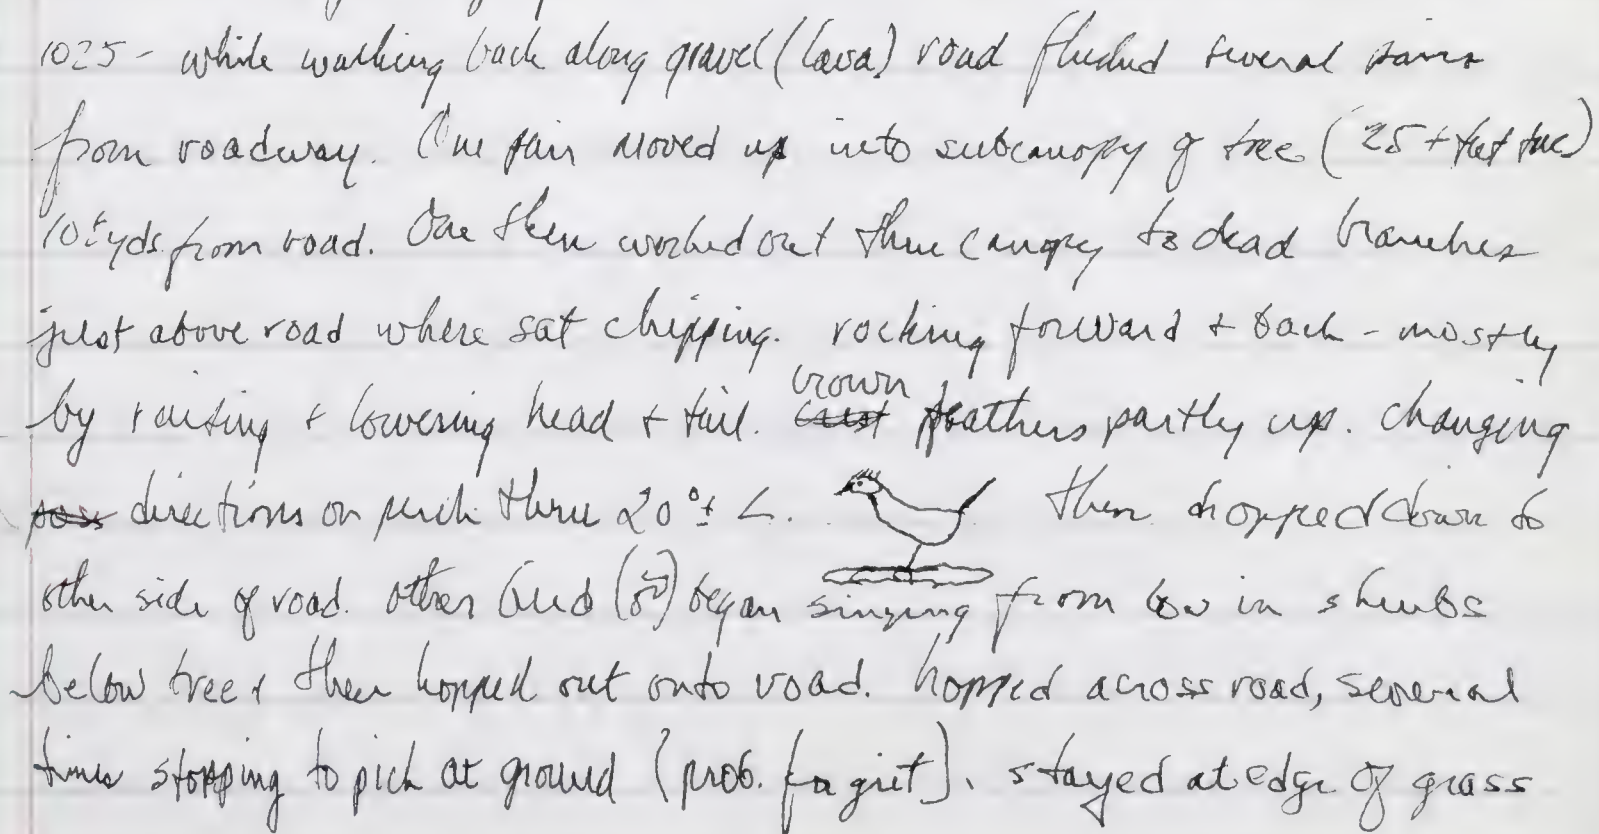 1025 - while walking back along gravel (lava) road flushed several pairs
from roadway. One pair moved up into subcanopy of tree (25+ feet
10± yds. from road. One then worked out thru canopy to dead branches
just above road where sat chipping. rocking forward + back - mostly
by raising + lowering head + tail. crown feathers partly up. changing
directions on perch thru 20°± ∠. Then hopped down to
other side of road. other bird (♂) began singing from low in shrubs
below tree + then hopped out onto road. hopped across road, several
times stopping to pick at ground (prob. for grit). stayed at edge of grass